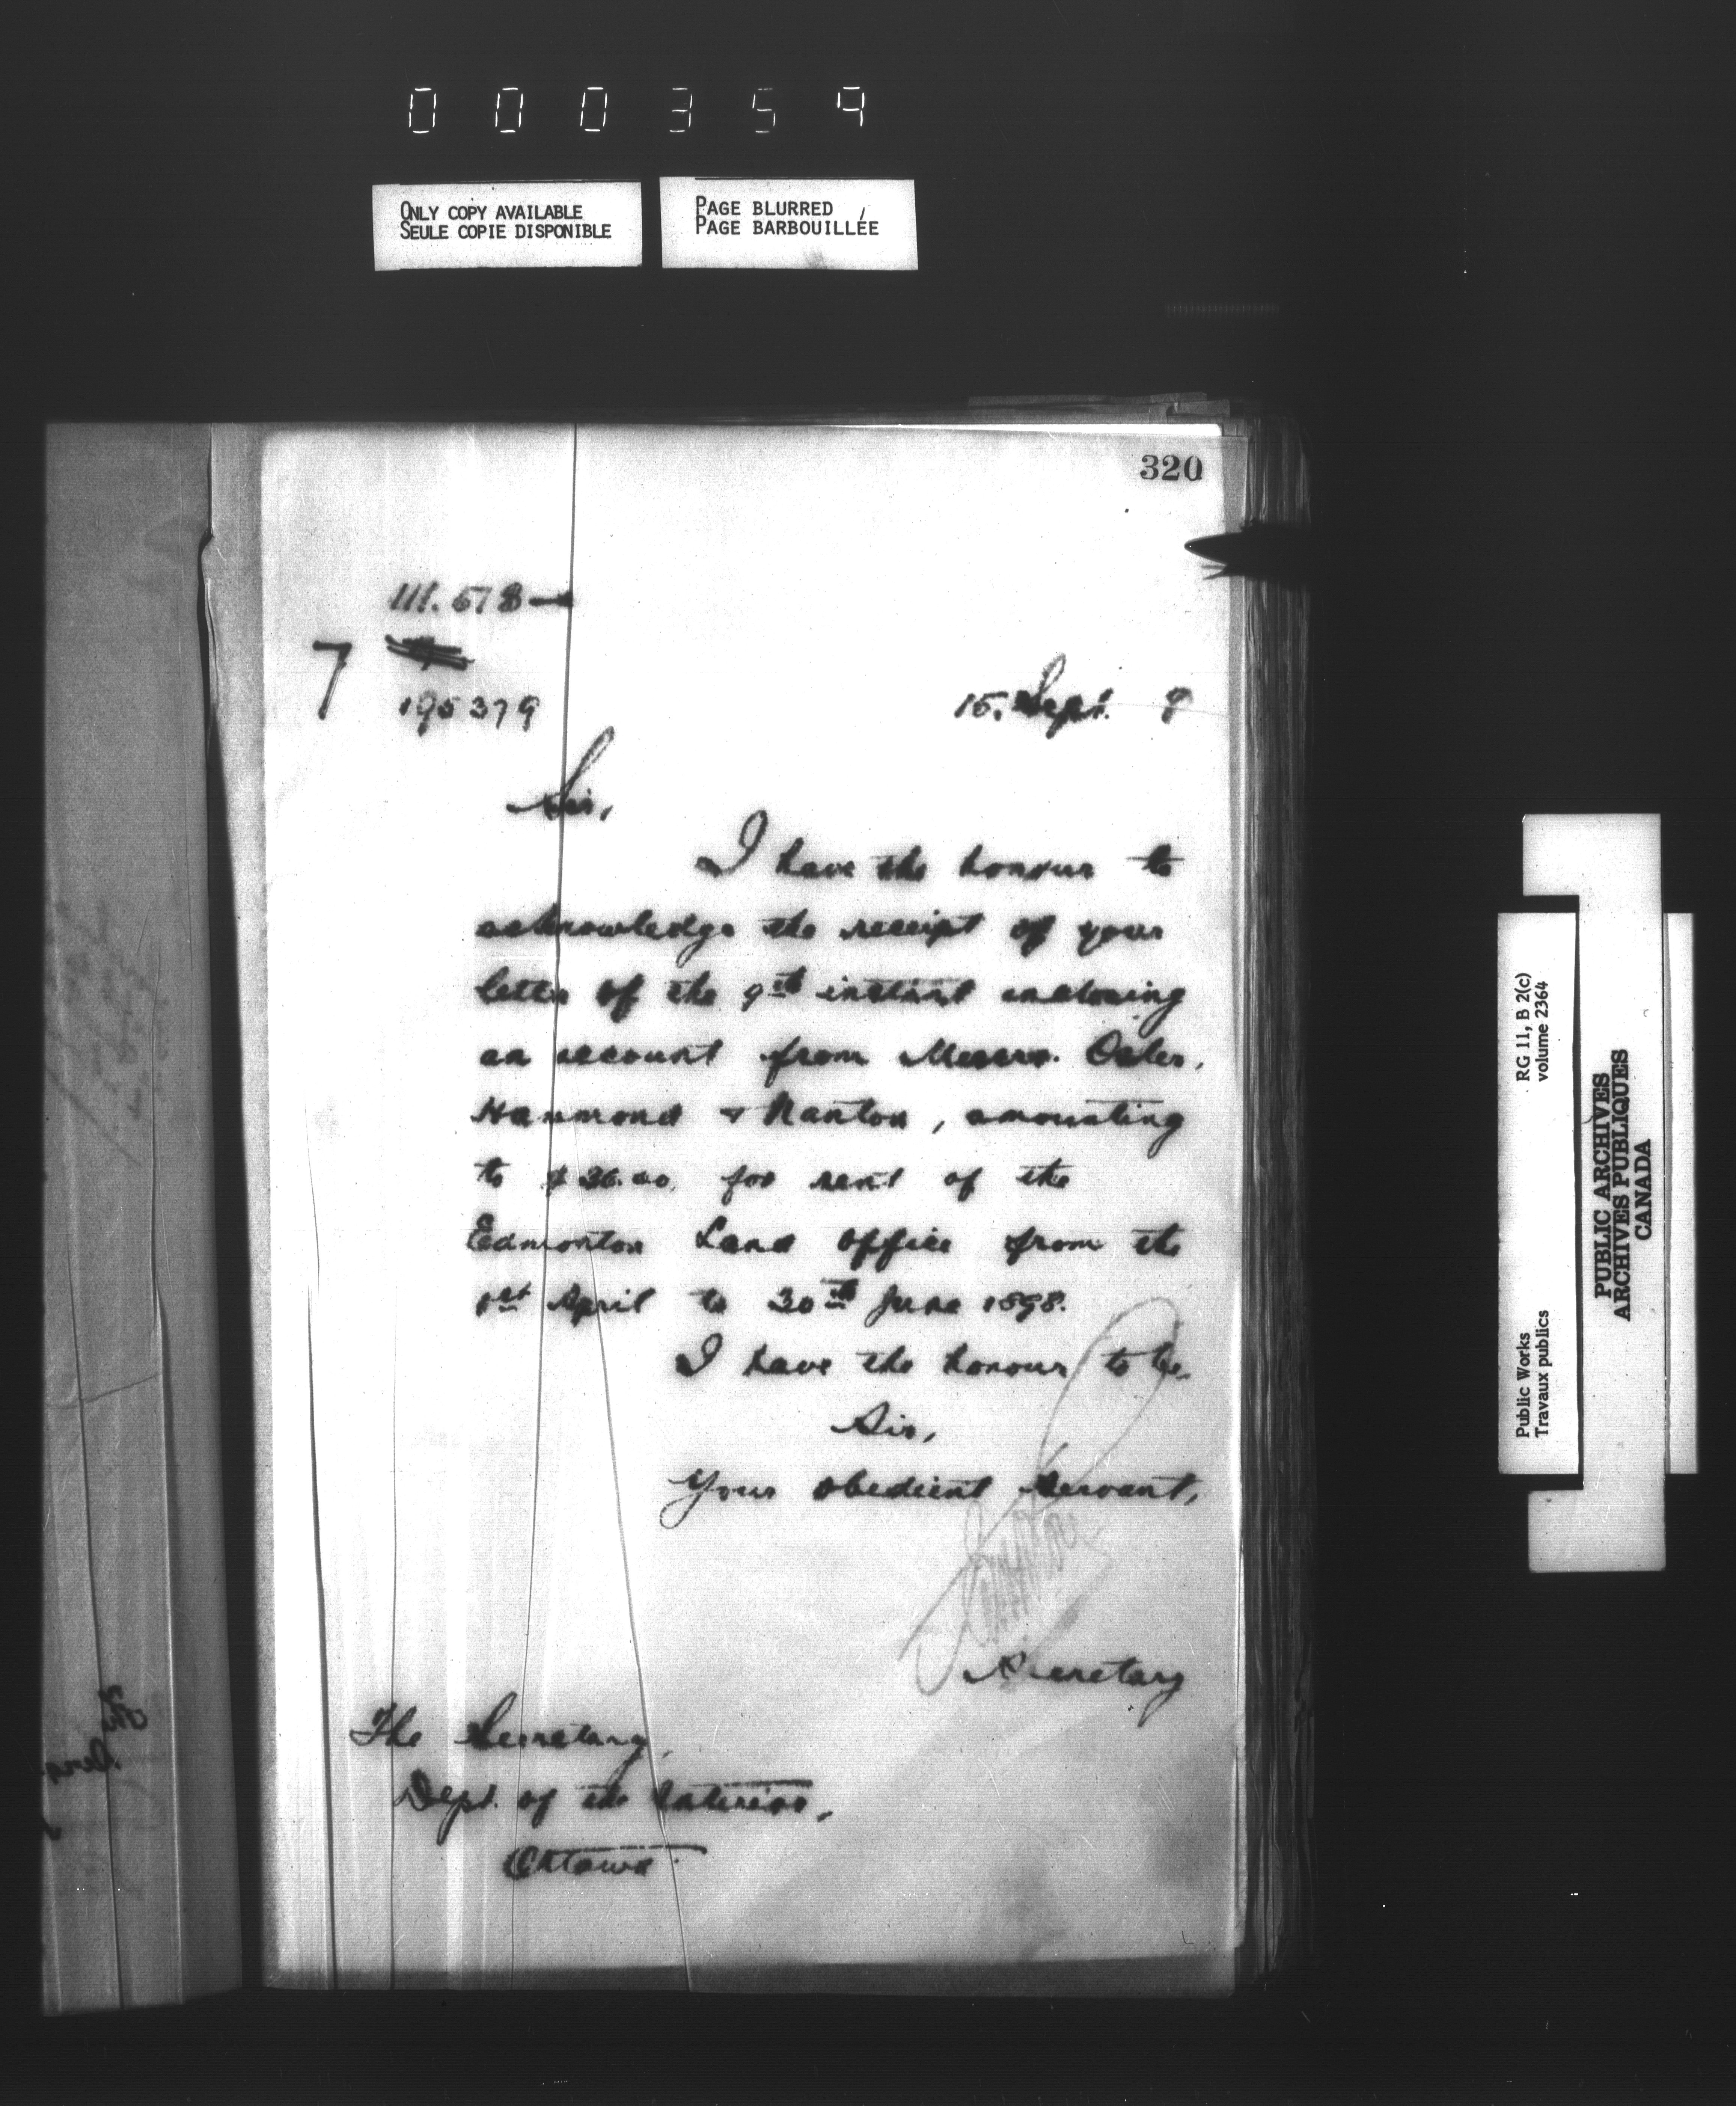 000359
ONLY COPY AVAILABLE
SEULE COPIE DISPONIBLE
PAGE BLURRED
PAGE BARBOUILLÉE
320
111.578
7
195379
15. Sept.
Sir,
I have the honour to
acknowledge the receipt of your
letter of the 9th instant enclosing
an account from Messrs. Osler,
Hammond & Nanton, amounting
to $36.00. for rent of the
Edmonton Land Office from the
1st April to 30th June 1898.
I have the honour to be,
Sir,
Your obedient Servant,
Secretary
The Secretary,
Dept. of the Interior,
Ottawa
RG 11, B 2(c)
volume 2364
Public Works
Travaux publics
PUBLIC ARCHIVES
ARCHIVES PUBLIQUES
CANADA